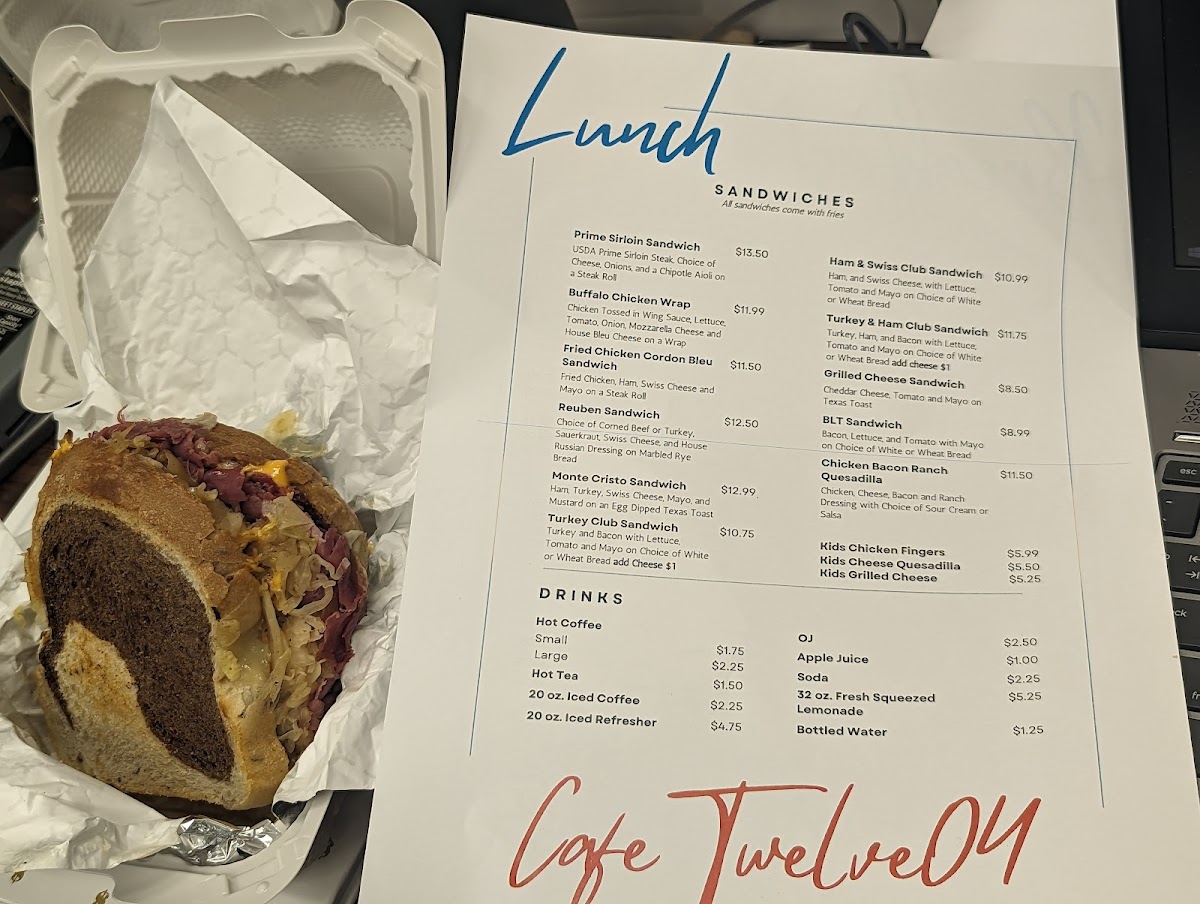 Lunch
SANDWICHES
All sandwiches come with fries
Prime Sirloin Sandwich $13.50
USDA Prime Sirloin Steak, Choice of
Cheese, Onions, and a Chipotle Aioli on
a Steak Roll
Buffalo Chicken Wrap $11.99
Chicken Tossed in Wing Sauce, Lettuce,
Tomato, Onion, Mozzarella Cheese and
House Bleu Cheese on a Wrap
Fried Chicken Cordon Bleu $11.50
Sandwich
Fried Chicken, Ham, Swiss Cheese and
Mayo on a Steak Roll
Reuben Sandwich $12.50
Choice of Corned Beef or Turkey,
Sauerkraut, Swiss Cheese, and House
Russian Dressing on Marbled Rye
Bread
Monte Cristo Sandwich $12.99
Ham, Turkey, Swiss Cheese, Mayo, and
Mustard on an Egg Dipped Texas Toast
Turkey Club Sandwich $10.75
Turkey and Bacon with Lettuce,
Tomato and Mayo on Choice of White
or Wheat Bread add Cheese $1
Ham & Swiss Club Sandwich $10.99
Ham, and Swiss Cheese, with Lettuce,
Tomato and Mayo on Choice of White
or Wheat Bread
Turkey & Ham Club Sandwich $11.75
Turkey, Ham, and Bacon with Lettuce,
Tomato and Mayo on Choice of White
or Wheat Bread add cheese $1
Grilled Cheese Sandwich $8.50
Cheddar Cheese, Tomato and Mayo on
Texas Toast
BLT Sandwich $8.99
Bacon, Lettuce, and Tomato with Mayo
on Choice of White or Wheat Bread
Chicken Bacon Ranch $11.50
Quesadilla
Chicken, Cheese, Bacon and Ranch
Dressing with Choice of Sour Cream or
Salsa
Kids Chicken Fingers $5.99
Kids Cheese Quesadilla $5.50
Kids Grilled Cheese $5.25
DRINKS
Hot Coffee
Small $1.75
Large $2.25
Hot Tea $1.50
20 oz. Iced Coffee $2.25
20 oz. Iced Refresher $4.75
OJ $2.50
Apple Juice $1.00
Soda $2.25
32 oz. Fresh Squeezed $5.25
Lemonade
Bottled Water $1.25
Cafe Twelve04
esc